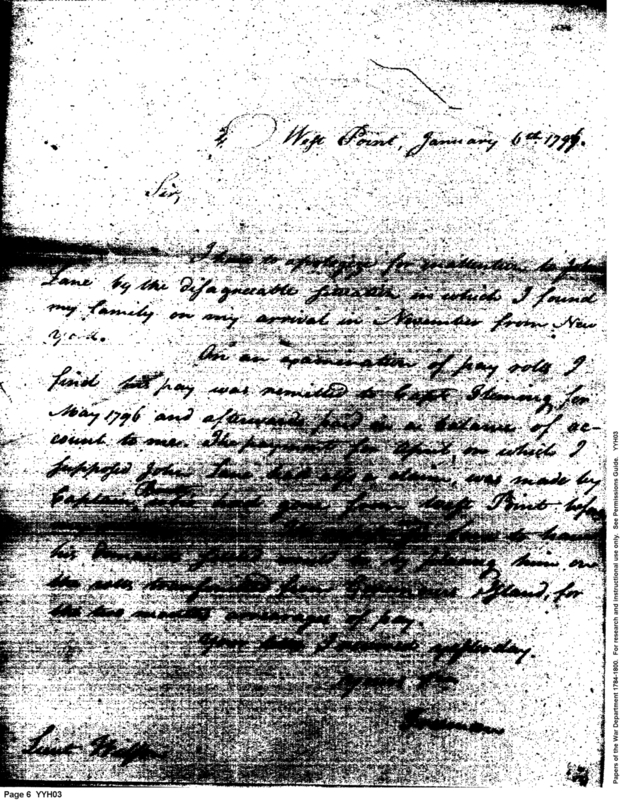 West Point, January 6th 179
Sir,
I have to apologize for inattention to John
Lane by the disagreeable situation in which I found
my family on my arrival in November from New
York.
On an examination of pay rolls I
find his pay was remitted to Capt. Fleming for
May 1796 and afterwards paid in a balance of ac-
count to me. The payment for April, on which I
supposed John Lane had a claim, was made by
Captain had gone from West Point before
have to have
his demands would be by placing him on
the rolls from Governors Island, for
the two months arrearages of pay.
Your letter I received yesterday.
Yours
Freeman
Lieut
Papers of the War Department 1784-1800. For research and instructional use only. See Permissions Guide. YYH03
Page 6 YYH03